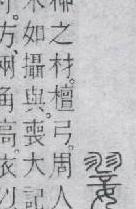 翣
柳之材。檀弓。周人
木如攝與。喪大記
方、兩角高。衣以